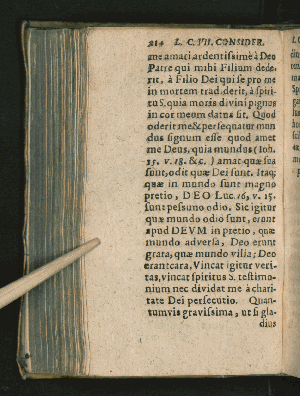 214 L. C. VII. CONSIDER.
me amari ardentissimè à Deo
Patre qui mihi Filium dede-
rit, à Filio Dei qui se pro me
in mortem tradiderit, à spiri-
tu S. quia moris divini pignus
in cor meum datus sit. Quod
oderit me & persequatur mun
dus signum esse quod amet
me Deus, quia mundus (Ioh.
15. v. 18. &c.) amat quæ sua
sunt, odit quæ Dei sunt. Itaq;
quæ in mundo sunt magno
pretio, DEO Luc. 16, v. 15.
sunt pessimo odio. Sic igitur
quæ mundo odio sunt, erunt
apud DEVM in pretio, quæ
mundo adversa, Deo erunt
grata, quæ mundo vilia; Deo
erant cara, Vincat igitur veri-
tas, vincat spiritus S. testimo-
nium nec dividat me à chari-
tate Dei persecutio. Quan-
tumvis gravissima, ut si gla-
dius